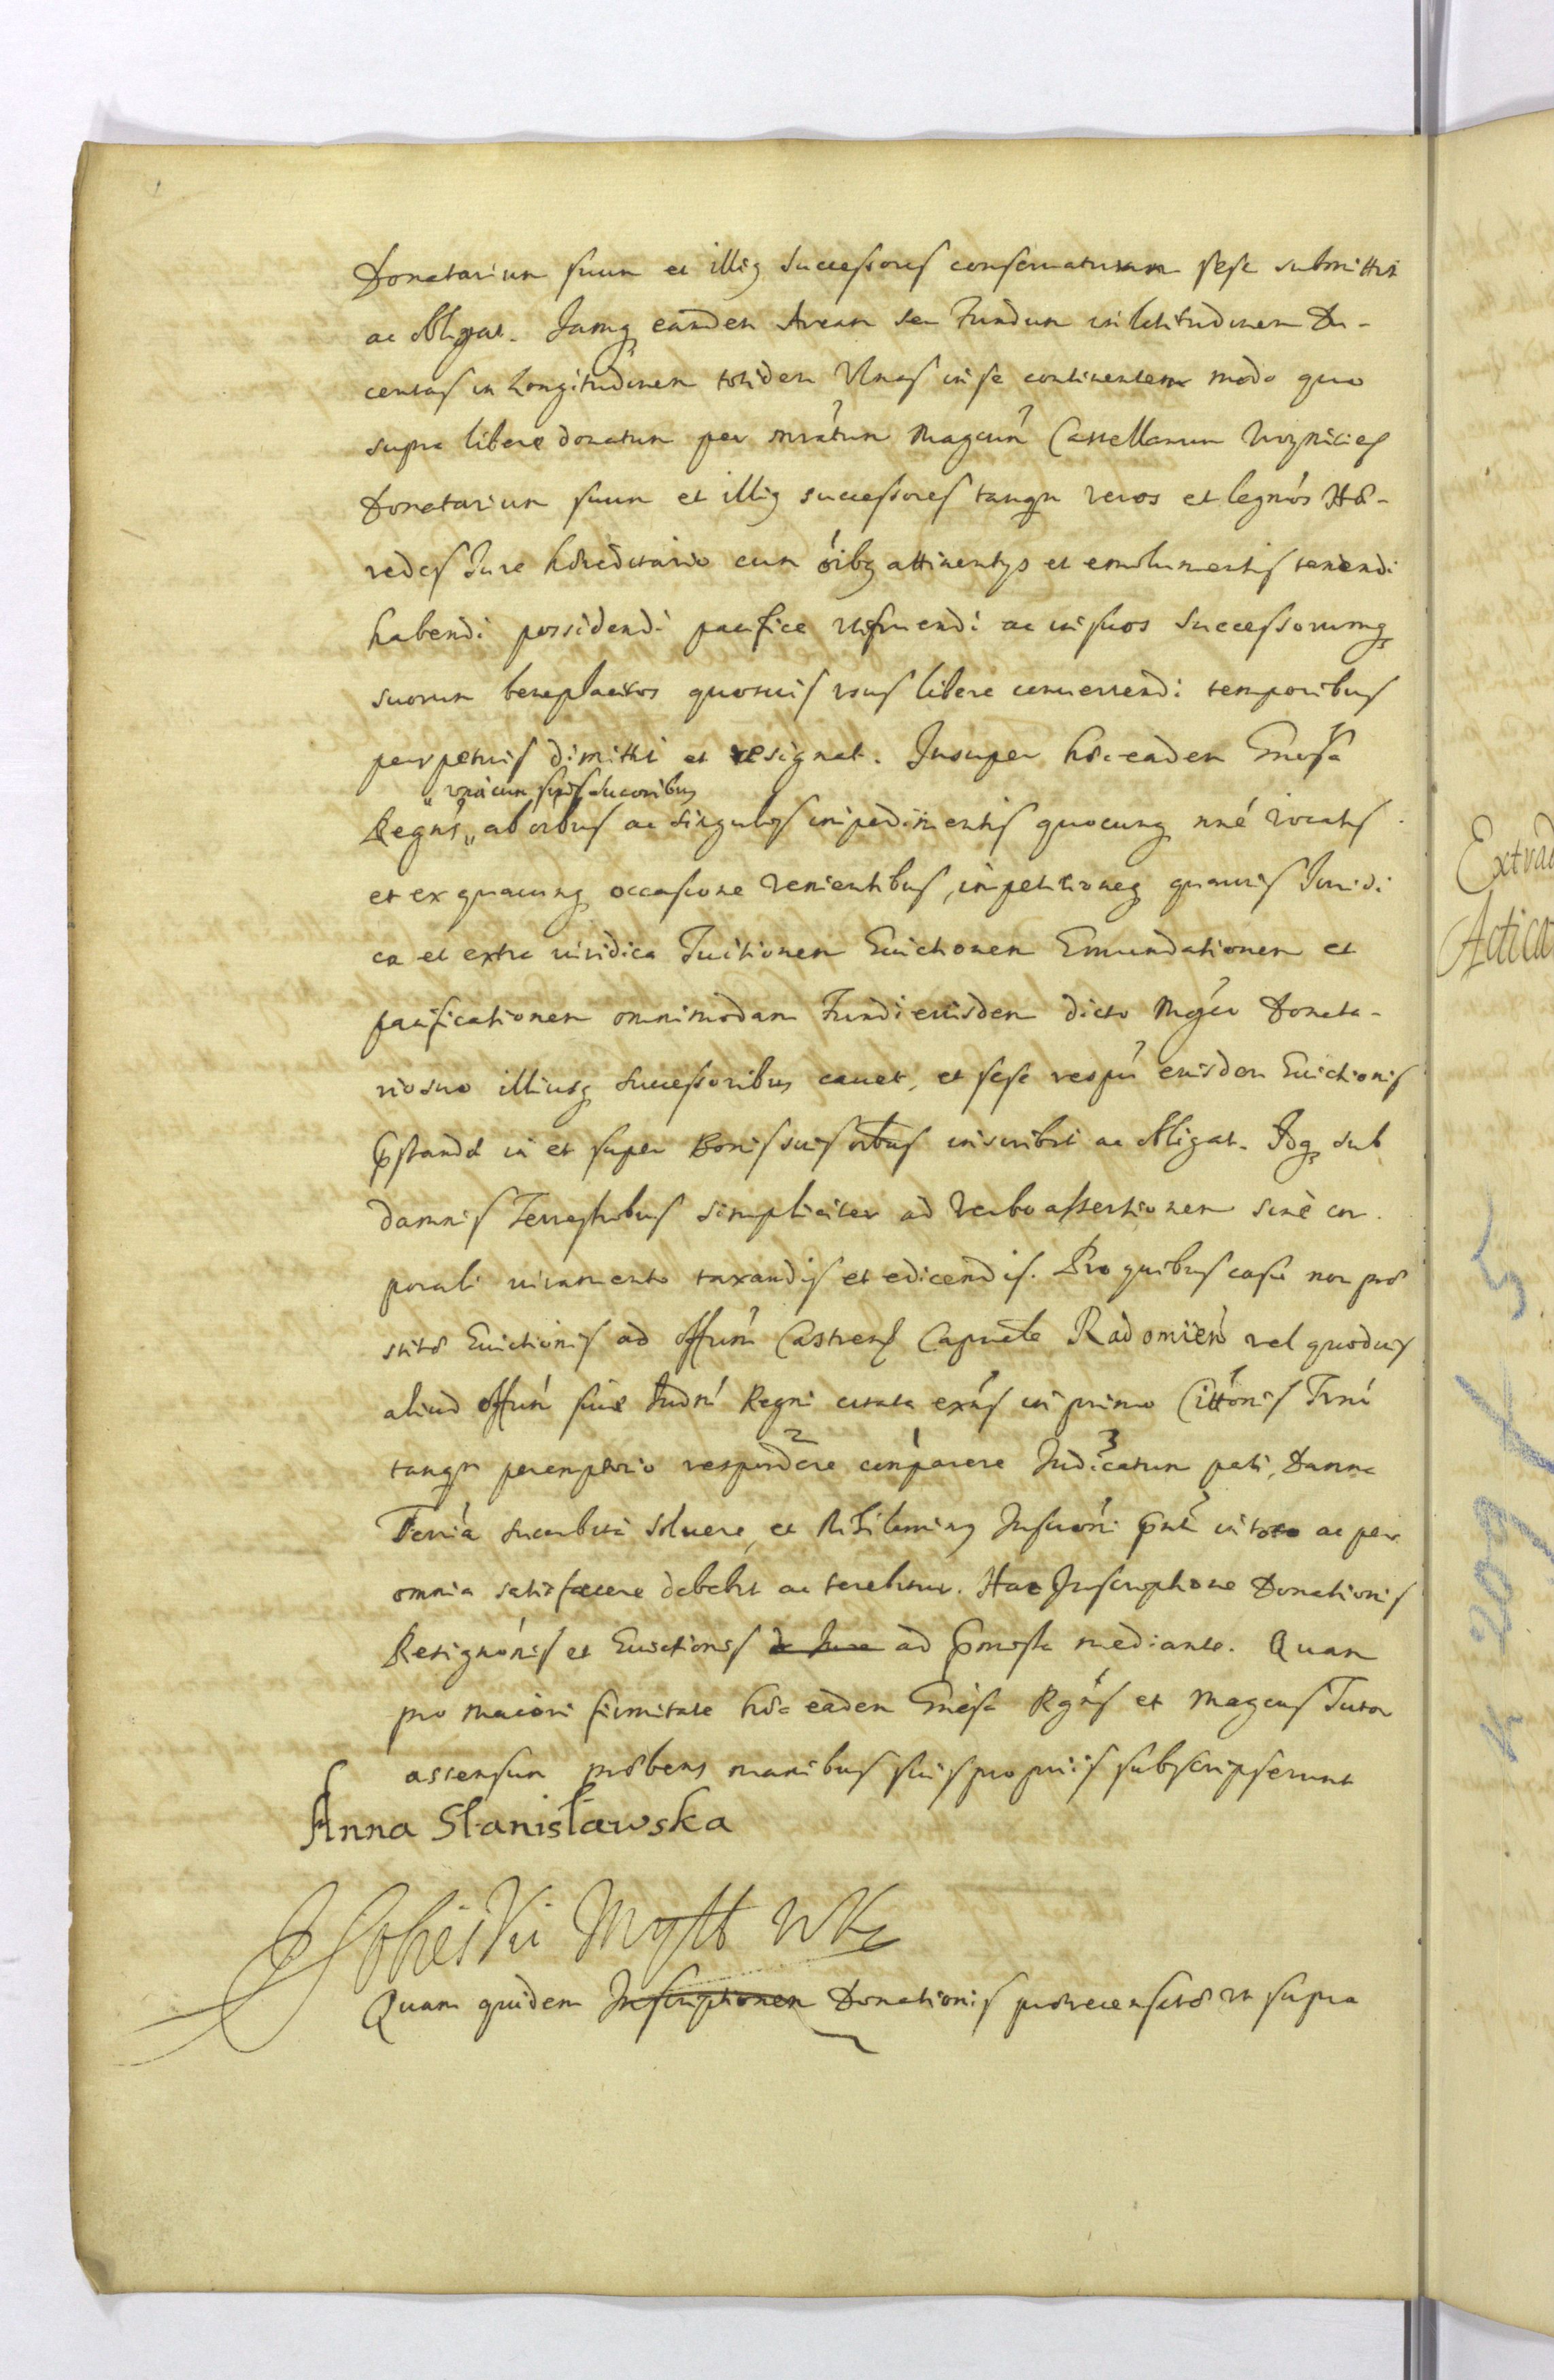 Donatarium suum et illiq successores conseruaturam sese submittit
ac obligat. Jamq eandem Aream seu Fundum in latitudinem Du-
centas in Longitudinem totidem Vlnas in se continentem modo quo
supra libere donatum per mratum Magcum Castellanum Woynicien
Donatarium suum et illiq successores tanqm veros et legmos Hæ-
redes Jure hæreditario cum oibq attinentys et emolumentis tenendi
habendi possidendi pacifice utifruendi ac in suos Successorumq
suorum beneplacitos quosuis vsus libere conuertendi temporibus
perpetuis dimittit et resignat. Insuper hæc eadem Gnosa
" vnacum suis succoribus
Regns " ab oibus ac singulis impedimentis quocunq nne vocatis
et ex quacunq occasione venientibus, impetitioneq quauis Juridi
ca et extra iuridica Tuitionem Euictionem Emundationem et
pacificationem omnimodam Fundi eiusdem dicto Mgco Donata-
rio suo illiusq successoribus cauet, et sese respu eiusdem Euictionis
Pstandæ in et super Bonis suis oibus inscribit ac obligat. Idq sub
damnis Terrestribus simpliciter ad verbo assertionem sine cor-
porali iuramento taxandis et edicendis. Pro quibus casu non præ
stitæ Euictionis ad Offum Castren Capnale Radomien vel quoduis
aliud Offum siue Judm Regni citata exns in primo Cittonis Trno
tanqm peremptorio respondere 2 comparere 1 Judicatum 3 pati, Damna
Terria succubita soluere, et nihilominq Inscroni Pnti in toto ac per
omnia satisfacere debebit ac tenebitur. Hac Inscriptione Donationis
Resignonis et Euictionis de Jure ad Pmissa mediante. Quam
pro maiori firmitate hæc eadem Gnosa Rgns et Magcus Tutor
assensum præbens manibus suis propriis subscripserunt
Anna Stanisławska
JSobieski
Quam quidem Inscriptionem Donationis prærecensitæ vt supra
Extrad
Actica